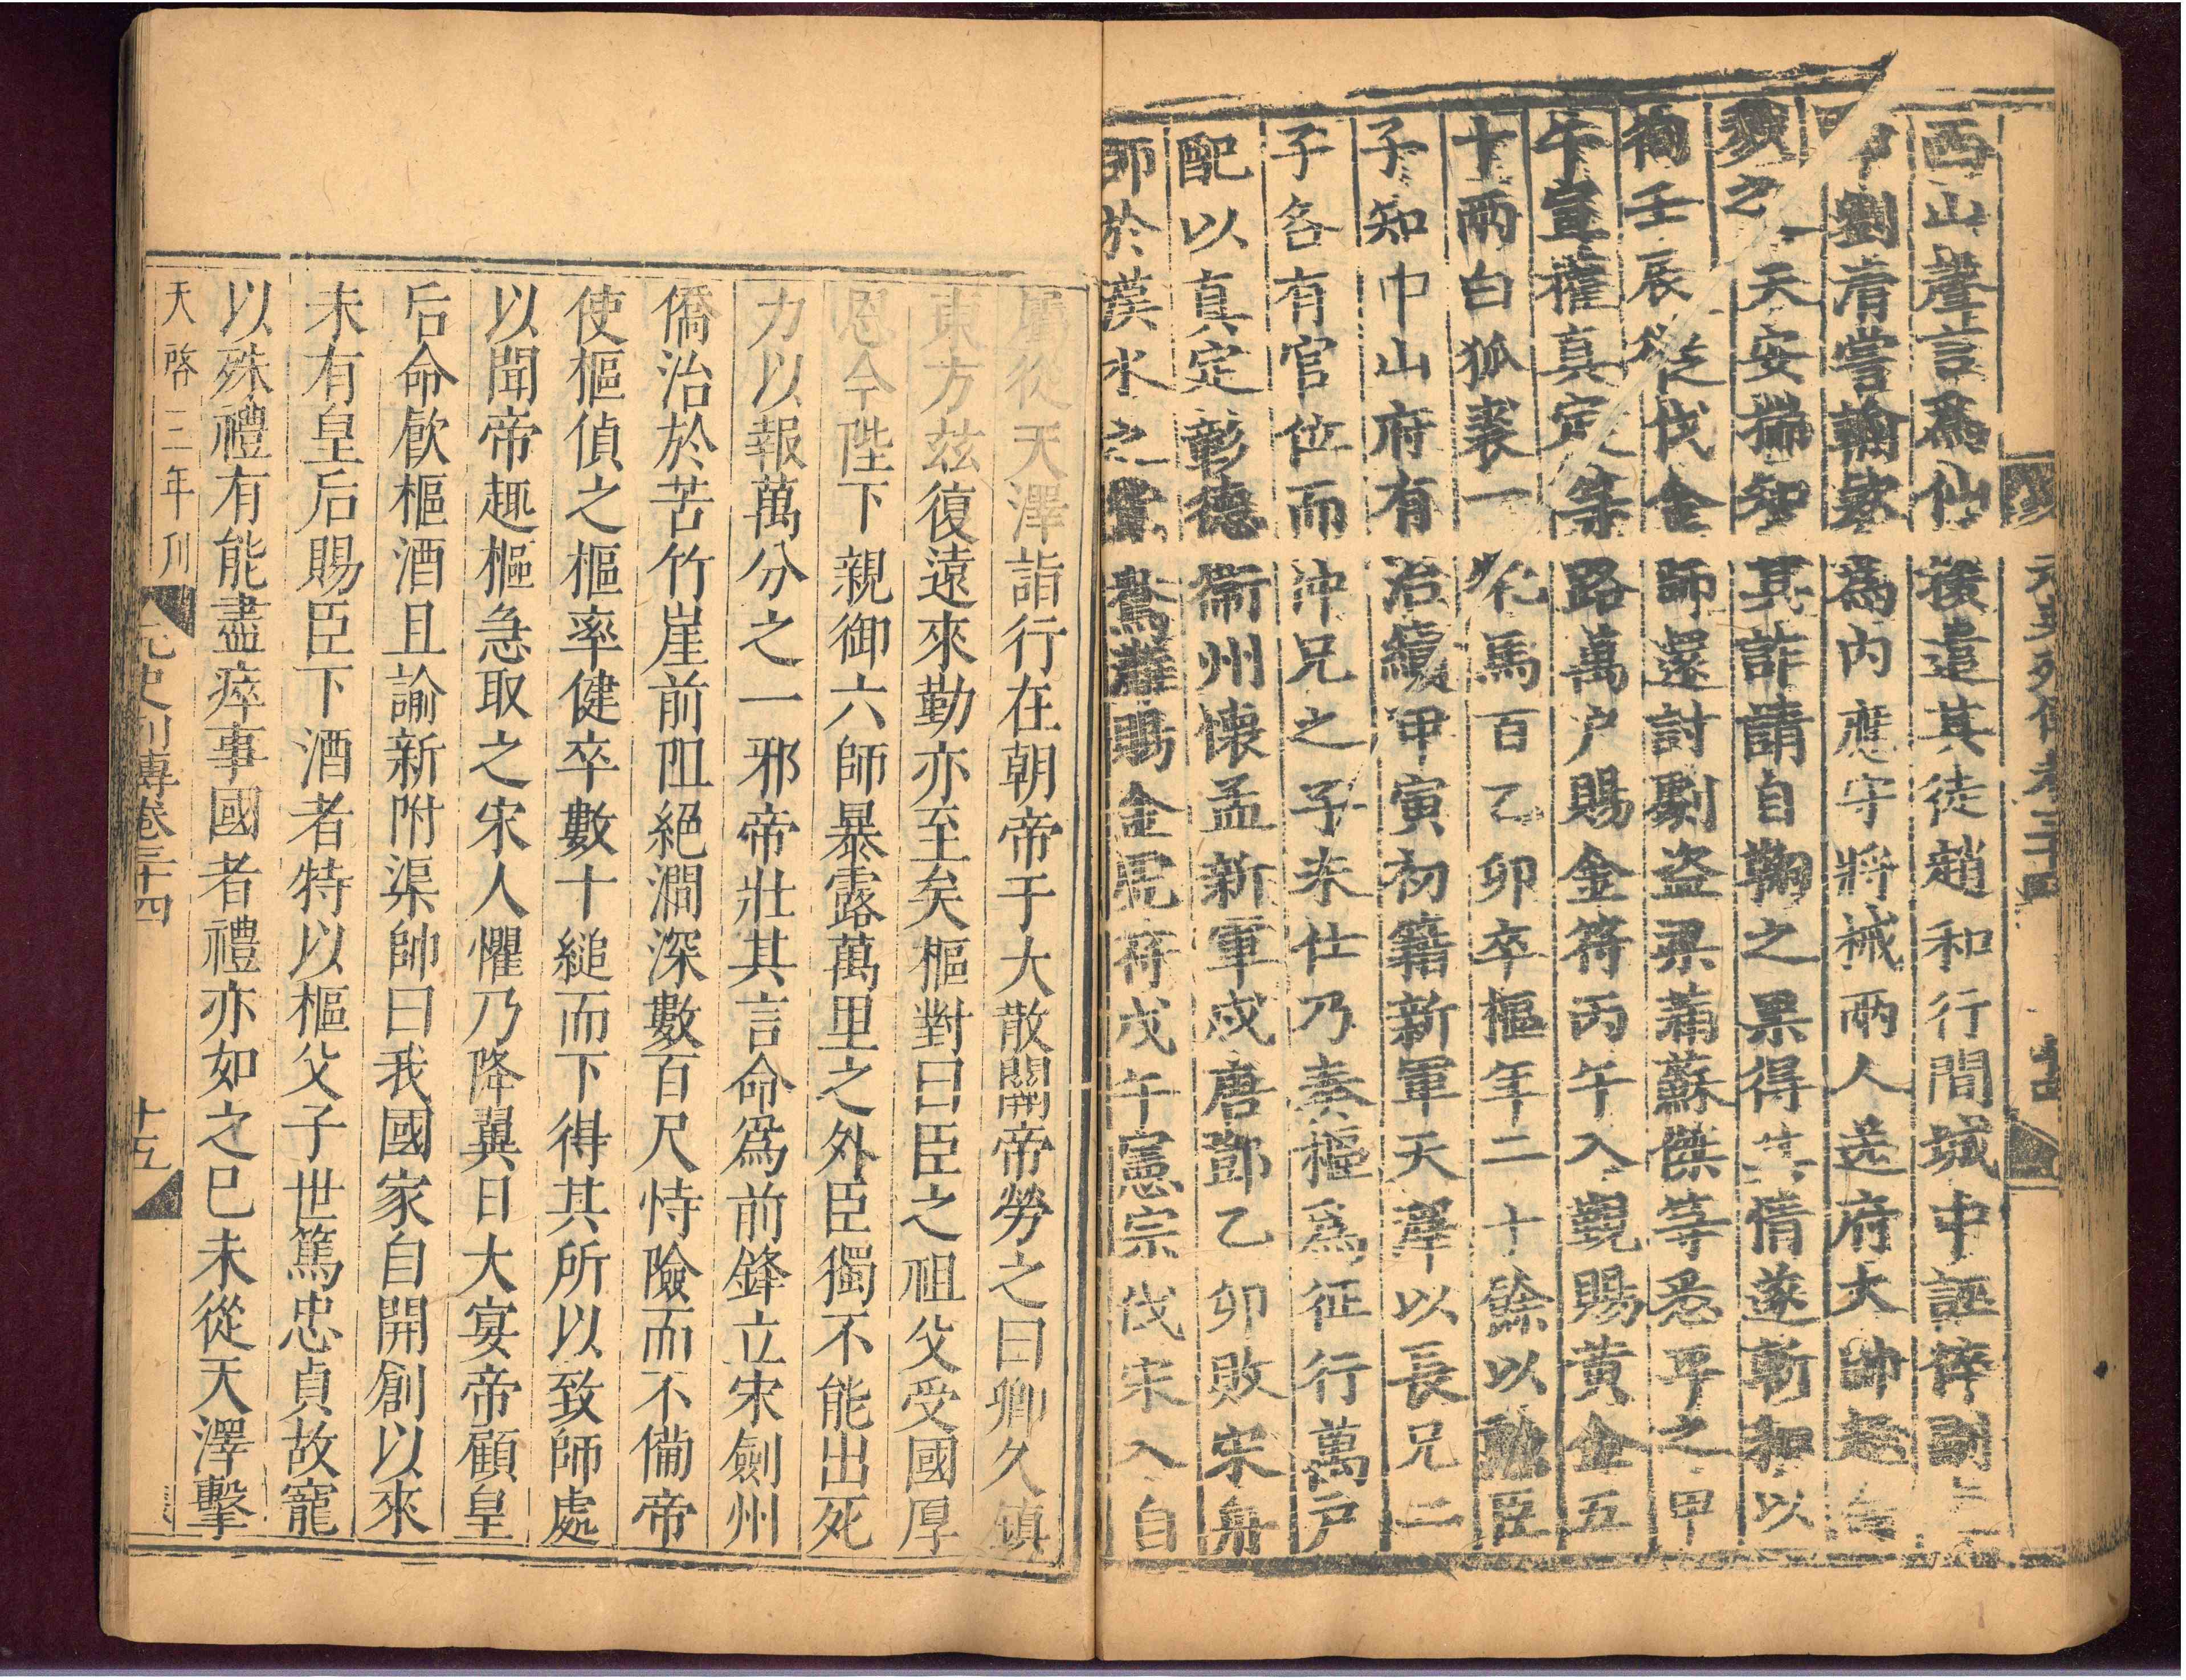 元史列傳卷三十四
西山聲言爲仙後遣其徒趙和行間城中誣倅副
甲劉淯嘗翰欵爲内應守將械兩人送府大帥
之天安揣知其詐請自鞫之果得其情遂斬和以
徇壬辰從伐金師還討劇盜梁蒲蘇傑等悉平之甲
午宣權真定等路萬户賜金符丙午入覲賜黄金五
十兩白狐裘一牝馬百乙卯卒樞年二十餘以勲臣
子知中山府有治績甲寅初籍新軍天澤以長兄二
子各有官位而沖兄之子未仕乃奏樞爲征行萬户
配以真定彰德衞州懐孟新軍戍唐鄧乙卯敗宋舟
師於漢水之鴛鴦灘賜金虎符戊午憲宗伐宋入自
屬從天澤詣行在朝帝于大散關帝勞之曰卿久鎮
東方兹復遠來勤亦至矣樞對曰臣之祖父受國厚
恩今陛下親御六師暴露萬里之外臣獨不能出死
力以報萬分之一邪帝壯其言命爲前鋒立宋劍州
僑治於苦竹崖前阻絕澗深數百尺恃險而不備帝
使樞偵之樞率健卒數十縋而下得其所以致師處
以聞帝趣樞急取之宋人懼乃降翼日大宴帝顧皇
后命飲樞酒且諭新附渠帥曰我國家自開創以來
未有皇后賜臣下酒者特以樞父子世篤忠貞故寵
以殊禮有能盡瘁事國者禮亦如之已未從天澤擊
天啓三年刋
元史列傳卷三十四
十五